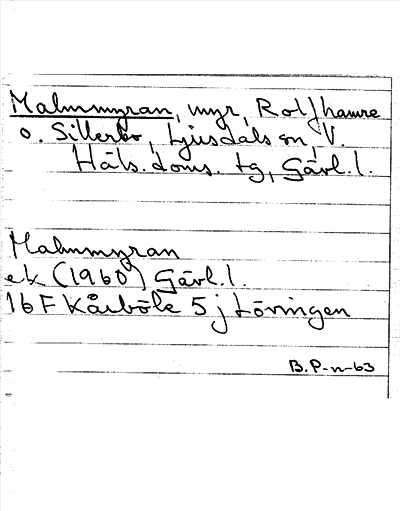 Malmmyran, myr, Rolfhamre
o. Sillerbo, Ljusdals sn, V.
Häls. doms. tg, Gävl. l.
Malmmyran
ek (1960) Gävl. l.
16 F Kårböle 5 j Lövringen
B. P-n-63